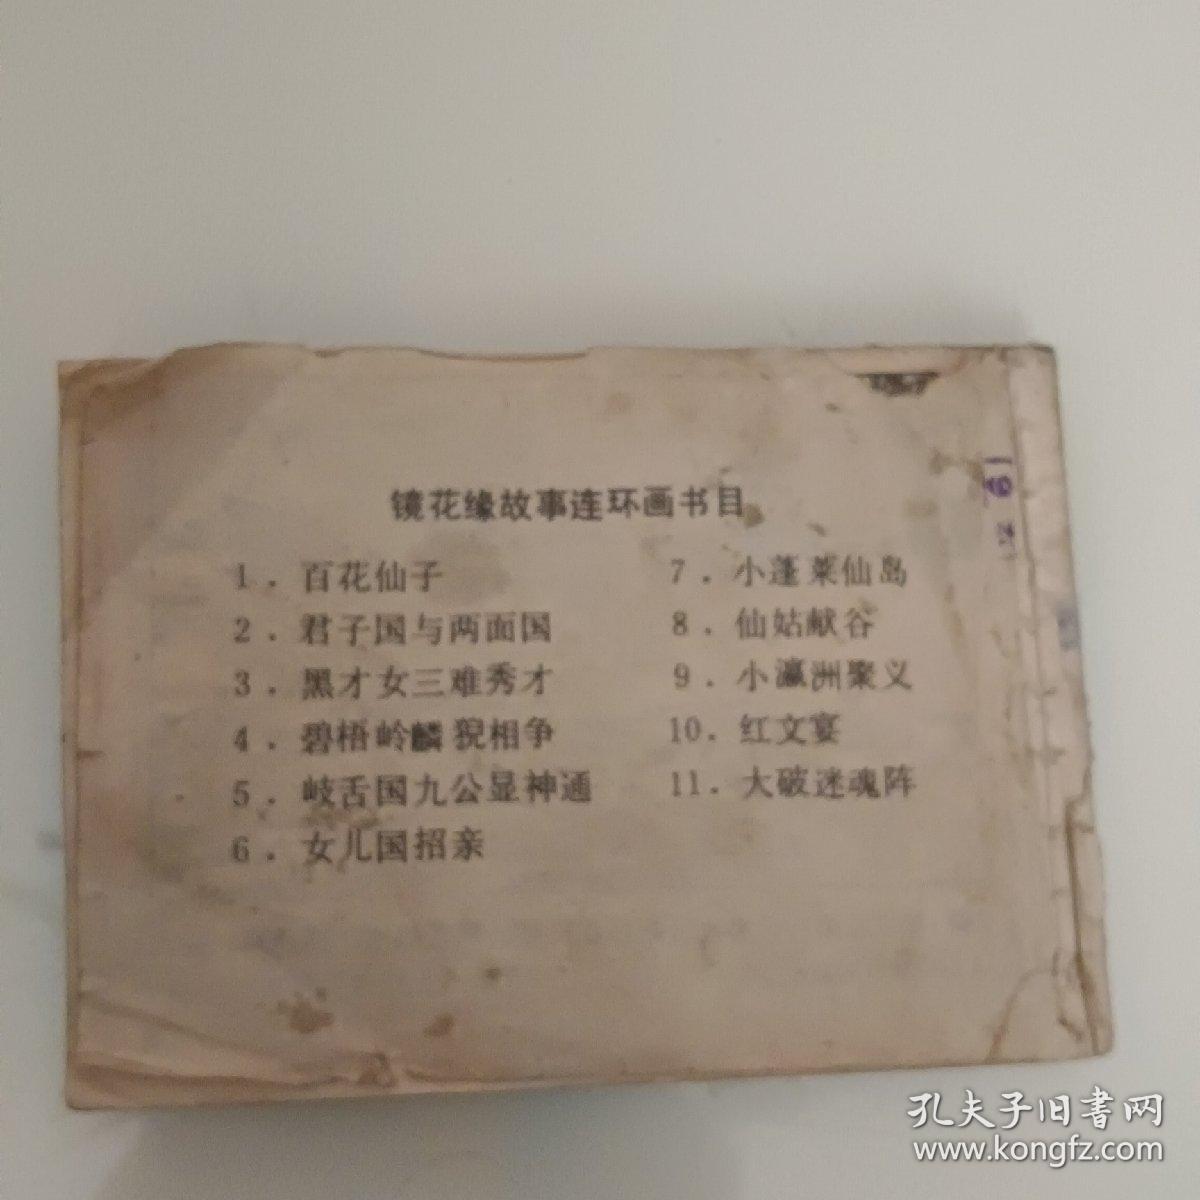 镜花缘故事连环画书目
1．百花仙子
2．君子国与两面国
3．黑才女三难秀才
4．碧梧岭麟猊相争
5．岐舌国九公显神通
6．女儿国招亲
7．小蓬莱仙岛
8．仙姑献谷
9．小瀛洲聚义
10．红文宴
11．大破迷魂阵
孔夫子旧书网
www.kongfz.com